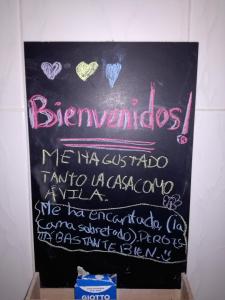 Bienvenidos!
ME HA GUSTADO
TANTO LA CASA COMO
AVILA.
(Me ha encantado, (la
cama sobretodo). PERO ES
TÁ BASTANTE BIEN.
GIOTTO